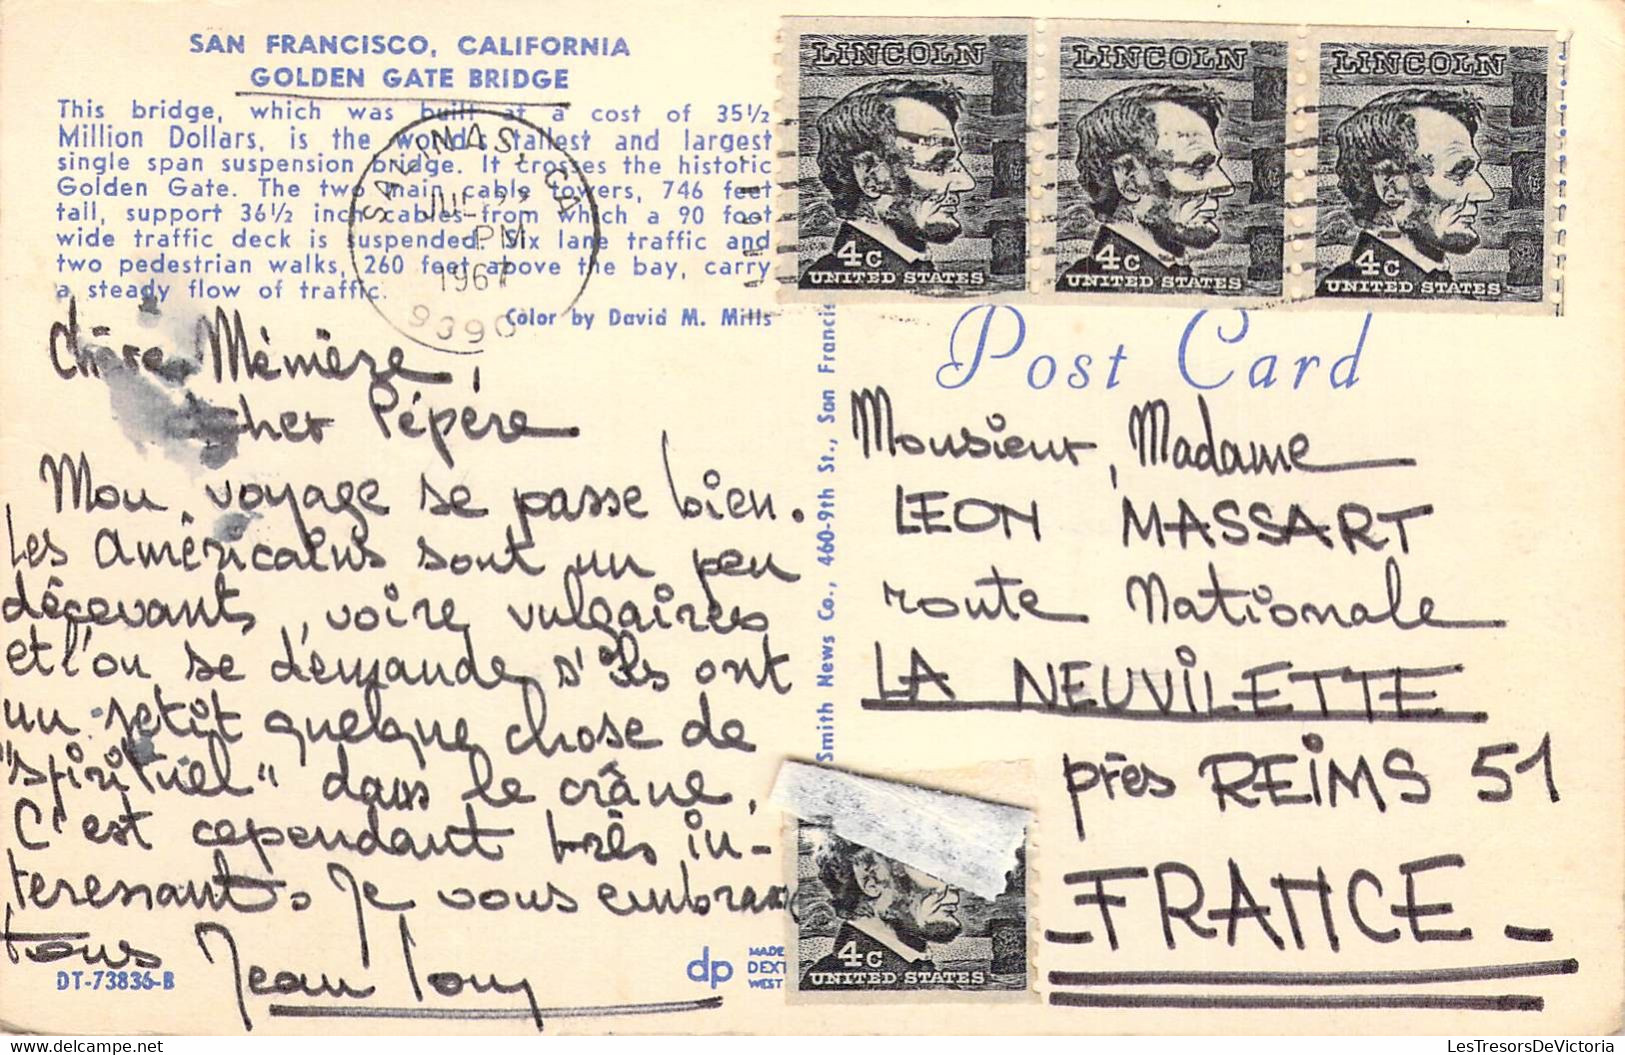 SAN FRANCISCO, CALIFORNIA
GOLDEN GATE BRIDGE
This bridge, which was built at a cost of 35½
Million Dollars, is the worlds tallest and largest
single span suspension bridge. It crosses the histotic
Golden Gate. The two main cable towers, 746 feet
tall, support 36½ inch cables from which a 90 foot
wide traffic deck is suspended. Six lane traffic and
two pedestrian walks, 260 feet above the bay, carry
a steady flow of traffic.
Color by David M. Mills
SALINAS, CA
PM
1967
9390
Chère Mémère,
cher Pépère
Mon voyage se passe bien.
Les américains sont un peu
décevants, voire vulgaires
et l'on se demande s'ils ont
un petit quelque chose de
"spirituel" dans le crâne.
C'est cependant très in-
teressant. Je vous embrasse
tous
Jean Louy
DT-73836-B
dp
MADE
DEXT
WEST
Smith News Co., 460-9th St., San Francis
LINCOLN
4c
UNITED STATES
LINCOLN
4c
UNITED STATES
LINCOLN
4c
UNITED STATES
Post Card
Monsieur, Madame
LEON MASSART
route Nationale
LA NEUVILETTE
près REIMS 51
-FRANCE-
4c
UNITED STATES
LesTresorsDeVictoria
www.delcampe.net